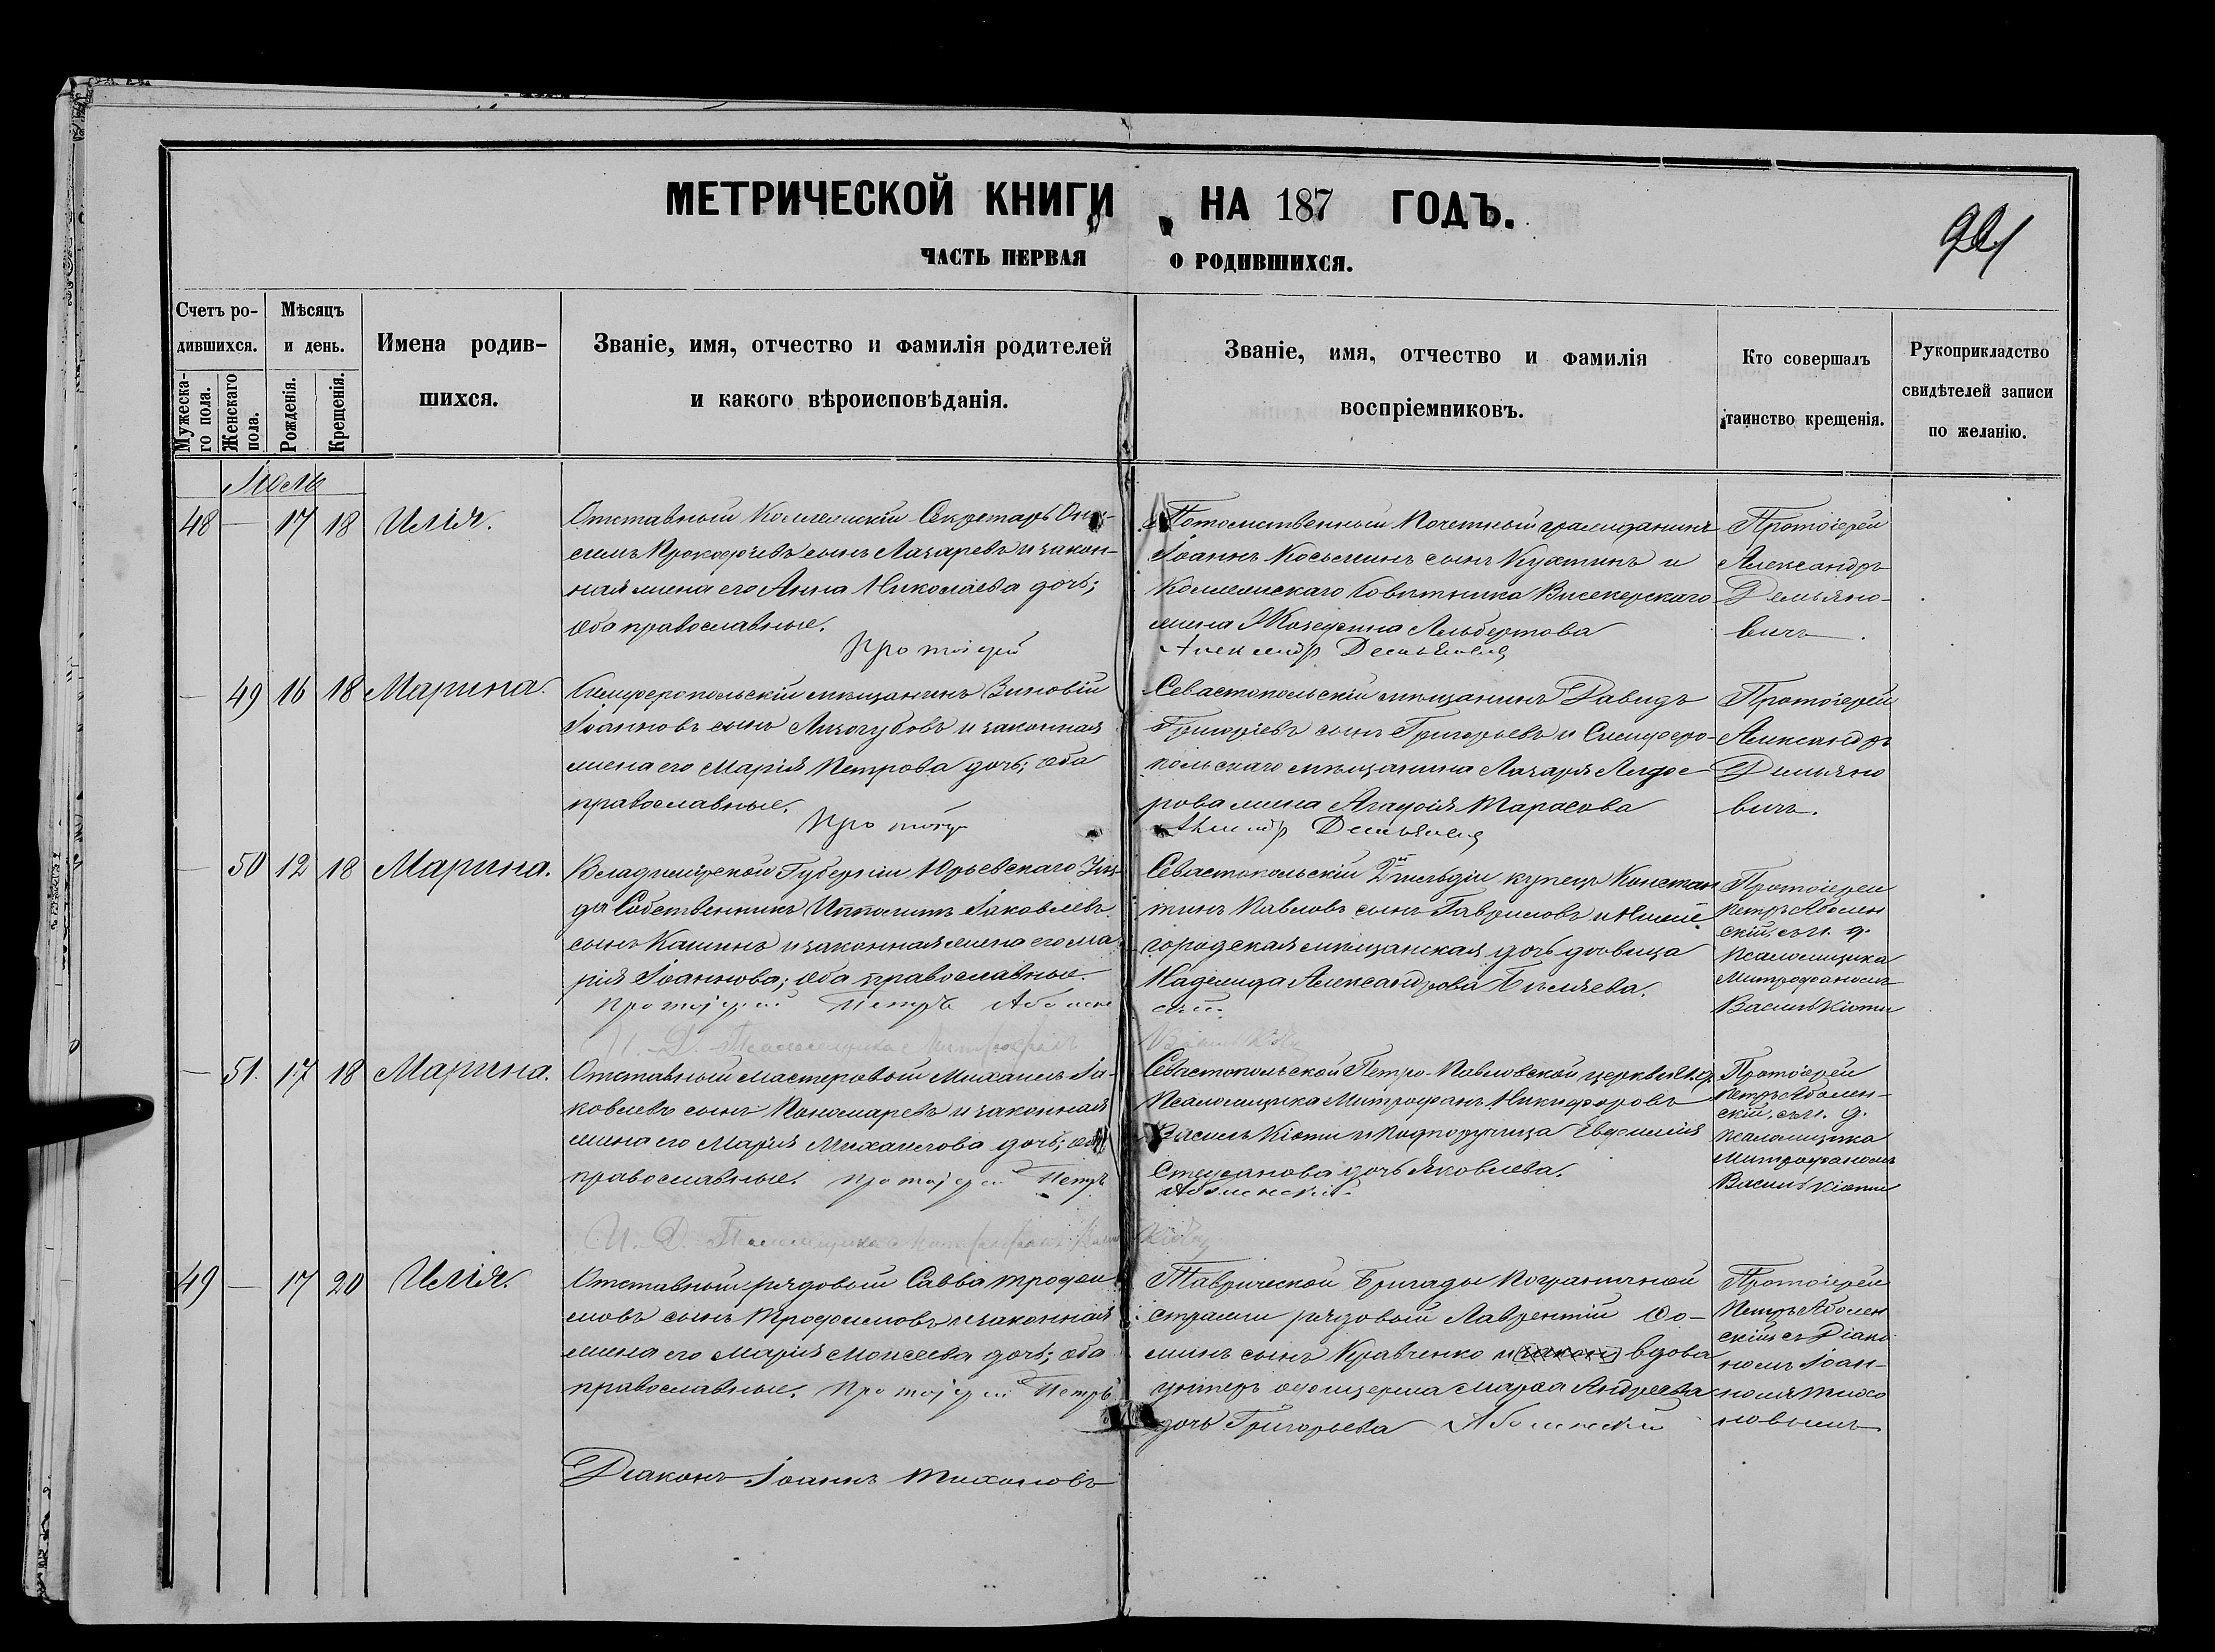 МЕТРИЧЕСКОЙ КНИГИ НА 187 ГОДЪ.
ЧАСТЬ ПЕРВАЯ О РОДИВШИХСЯ.
Счетъ ро-
дившихся.
Мужеска-
го пола.
Женскаго
пола.
Мѣсяцъ
и день.
Рожденія.
Крещенія.
Имена родив-
шихся.
Званіе, имя, отчество и фамилія родителей
и какого вѣроисповѣданія.
Званіе, имя, отчество и фамилія
воспріемниковъ.
Кто совершалъ
таинство крещенія.
Рукоприкладство
свидѣтелей записи
по желанію.
Іюль
48 — 17 18 Илія.
Отставный Коллежскій Секретарь Они-
симъ Прокофіевъ сынъ Лазаревъ и закон-
ная жена его Анна Николаева дочь;
оба православные.
Протоіерей
Потомственный Почетный гражданинъ
Іоаннъ Косьминъ сынъ Кухтинъ и
Коллежскаго Совѣтника
жена Жозефина Альбертова
Александр Демьянович
Протоіерей
Александръ
Демьяно-
вичъ.
— 49 16 18 Марина.
Симферопольскій мѣщанинъ Зиновій
Іоанновъ сынъ Лизогубовъ и законная
жена его Марія Петрова дочь; оба
православные.
Севастопольскій мѣщанинъ Давидъ
Григоріевъ сынъ Григорьевъ и Симферо-
польскаго мѣщанина Лазаря
жена Агафія Тарасова
Демьянович
Протоіерей
Александръ
Демьяно
вичъ.
— 50 12 18 Марина.
Владимірской Губерніи Юрьевскаго Уѣз-
да Собственникъ Ипполитъ Іаковлевъ
сынъ Кашинъ и законная жена его Ма-
рія Іоаннова; оба православные.
Протоіерей Петръ Аболен
Севастопольскій 2й гильдіи купецъ Констан
тинъ Павловъ сынъ Гавриловъ и Ниже
городская мѣщанская дочь дѣвица
Надежда Александрова Бѣляева.
скій.
Протоіерей
Петръ Аболен
скій, съ и. д.
псаломщика
Митрофаномъ
Василькіоти
И. Д. Псаломщика Митрофанъ
— 51. 17 18 Марина.
Отставный мастеровой Михаилъ Іа-
ковлевъ сынъ Пономаревъ и законная
жена его Марія Михаилова дочь; оба
православные. Протоіерей Петръ
Севастопольской Петро-Павловской церкви и. д.
Псаломщика Митрофанъ Никифоровъ
Василькіоти и Подпоручица Евфимія
Стефанова дочь Яковлева.
Аболенскій.
Протоіерей
Петръ Аболен-
скій, съ и. д.
псаломщика
Митрофаномъ
Василькіоти
И. Д. Псаломщика Митрофанъ
49 — 17 20 Илія.
Отставный рядовый Савва Трофи
мовъ сынъ Трофимовъ и законная
жена его Марія Моисеева дочь; оба
православные. Протоіерей Петръ
Таврической Бригады Пограничной
стражи рядовый Лаврентій Ѳо-
минъ сынъ Кравченко и вдова
унтеръ офицерша Марѳа Андреева
дочь Григорьева Аболенскій
Протоіерей
Петръ Аболен
скій съ Діако
номъ Іоан-
номъ Тихо
новымъ
Діаконъ Іоаннъ Тихоновъ